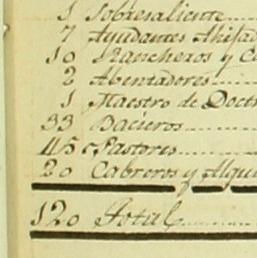 1 Sobresaliente
7 Ayudantes Ahijad
10 Rancheros y C
2 Abentadores
1 Maestro de Doctr
33 Bacieros
45 Pastores
20 Cabreros y Alqui
120 Total